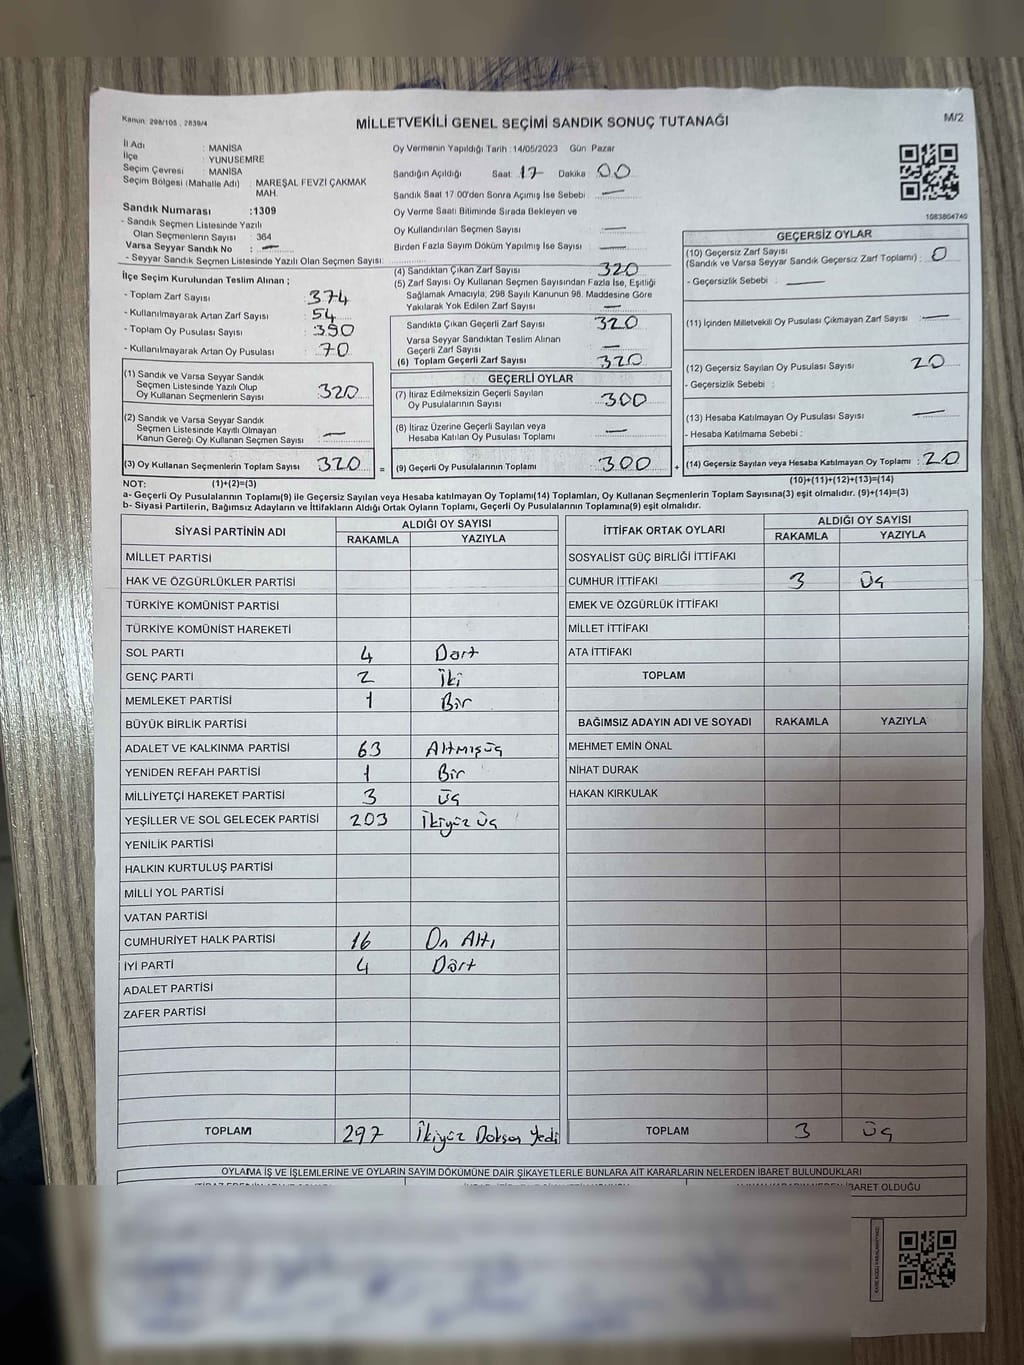 Kanun: 298/105 , 2839/4
MİLLETVEKİLİ GENEL SEÇİMİ SANDIK SONUÇ TUTANAĞI
M/2
İl Adı : MANİSA
İlçe : YUNUSEMRE
Seçim Çevresi : MANİSA
Seçim Bölgesi (Mahalle Adı) : MAREŞAL FEVZİ ÇAKMAK MAH.
Sandık Numarası :1309
- Sandık Seçmen Listesinde Yazılı
Olan Seçmenlerin Sayısı : 364
Varsa Seyyar Sandık No : —
- Seyyar Sandık Seçmen Listesinde Yazılı Olan Seçmen Sayısı:
Oy Vermenin Yapıldığı Tarih :14/05/2023 Gün Pazar
Sandığın Açıldığı Saat : 17 Dakika : 00
Sandık Saat 17:00'den Sonra Açımış İse Sebebi : —
Oy Verme Saati Bitiminde Sırada Bekleyen ve
Oy Kullandırılan Seçmen Sayısı : —
Birden Fazla Sayım Döküm Yapılmış İse Sayısı : —
1083804740
İlçe Seçim Kurulundan Teslim Alınan ;
- Toplam Zarf Sayısı : 374
- Kullanılmayarak Artan Zarf Sayısı : 54
- Toplam Oy Pusulası Sayısı : 390
- Kullanılmayarak Artan Oy Pusulası : 70
(1) Sandık ve Varsa Seyyar Sandık
Seçmen Listesinde Yazılı Olup
Oy Kullanan Seçmenlerin Sayısı : 320
(2) Sandık ve Varsa Seyyar Sandık
Seçmen Listesinde Kayıtlı Olmayan
Kanun Gereği Oy Kullanan Seçmen Sayısı : —
(3) Oy Kullanan Seçmenlerin Toplam Sayısı : 320 =
(4) Sandıktan Çıkan Zarf Sayısı : 320
(5) Zarf Sayısı Oy Kullanan Seçmen Sayısından Fazla İse, Eşitliği
Sağlamak Amacıyla, 298 Sayılı Kanunun 98. Maddesine Göre
Yakılarak Yok Edilen Zarf Sayısı : —
Sandıkta Çıkan Geçerli Zarf Sayısı : 320
Varsa Seyyar Sandıktan Teslim Alınan
Geçerli Zarf Sayısı : —
(6) Toplam Geçerli Zarf Sayısı : 320
GEÇERLİ OYLAR
(7) İtiraz Edilmeksizin Geçerli Sayılan
Oy Pusulalarının Sayısı : 300
(8) İtiraz Üzerine Geçerli Sayılan veya
Hesaba Katılan Oy Pusulası Toplamı : —
(9) Geçerli Oy Pusulalarının Toplamı : 300 +
GEÇERSİZ OYLAR
(10) Geçersiz Zarf Sayısı
(Sandık ve Varsa Seyyar Sandık Geçersiz Zarf Toplamı) : 0
- Geçersizlik Sebebi : —
(11) İçinden Milletvekili Oy Pusulası Çıkmayan Zarf Sayısı : —
(12) Geçersiz Sayılan Oy Pusulası Sayısı : 20
- Geçersizlik Sebebi :
(13) Hesaba Katılmayan Oy Pusulası Sayısı : —
- Hesaba Katılmama Sebebi :
(14) Geçersiz Sayılan veya Hesaba Katılmayan Oy Toplamı : 20
NOT: (1)+(2)=(3) (10)+(11)+(12)+(13)=(14)
a- Geçerli Oy Pusulalarının Toplamı(9) ile Geçersiz Sayılan veya Hesaba katılmayan Oy Toplamı(14) Toplamları, Oy Kullanan Seçmenlerin Toplam Sayısına(3) eşit olmalıdır. (9)+(14)=(3)
b- Siyasi Partilerin, Bağımsız Adayların ve İttifakların Aldığı Ortak Oyların Toplamı, Geçerli Oy Pusulalarının Toplamına(9) eşit olmalıdır.
SİYASİ PARTİNİN ADI ALDIĞI OY SAYISI
RAKAMLA YAZIYLA
MİLLET PARTİSİ
HAK VE ÖZGÜRLÜKLER PARTİSİ
TÜRKİYE KOMÜNİST PARTİSİ
TÜRKİYE KOMÜNİST HAREKETİ
SOL PARTİ 4 Dört
GENÇ PARTİ 2 İki
MEMLEKET PARTİSİ 1 Bir
BÜYÜK BİRLİK PARTİSİ
ADALET VE KALKINMA PARTİSİ 63 Altmışüç
YENİDEN REFAH PARTİSİ 1 Bir
MİLLİYETÇİ HAREKET PARTİSİ 3 üç
YEŞİLLER VE SOL GELECEK PARTİSİ 203 İkiyüz üç
YENİLİK PARTİSİ
HALKIN KURTULUŞ PARTİSİ
MİLLİ YOL PARTİSİ
VATAN PARTİSİ
CUMHURİYET HALK PARTİSİ 16 On Altı
İYİ PARTİ 4 Dört
ADALET PARTİSİ
ZAFER PARTİSİ
TOPLAM 297 İkiyüz Doksan Yedi
İTTİFAK ORTAK OYLARI ALDIĞI OY SAYISI
RAKAMLA YAZIYLA
SOSYALİST GÜÇ BİRLİĞİ İTTİFAKI
CUMHUR İTTİFAKI 3 üç
EMEK VE ÖZGÜRLÜK İTTİFAKI
MİLLET İTTİFAKI
ATA İTTİFAKI
TOPLAM
BAĞIMSIZ ADAYIN ADI VE SOYADI RAKAMLA YAZIYLA
MEHMET EMİN ÖNAL
NİHAT DURAK
HAKAN KIRKULAK
TOPLAM 3 üç
OYLAMA İŞ VE İŞLEMLERİNE VE OYLARIN SAYIM DÖKÜMÜNE DAİR ŞİKAYETLERLE BUNLARA AİT KARARLARIN NELERDEN İBARET BULUNDUKLARI
İBARET OLDUĞU